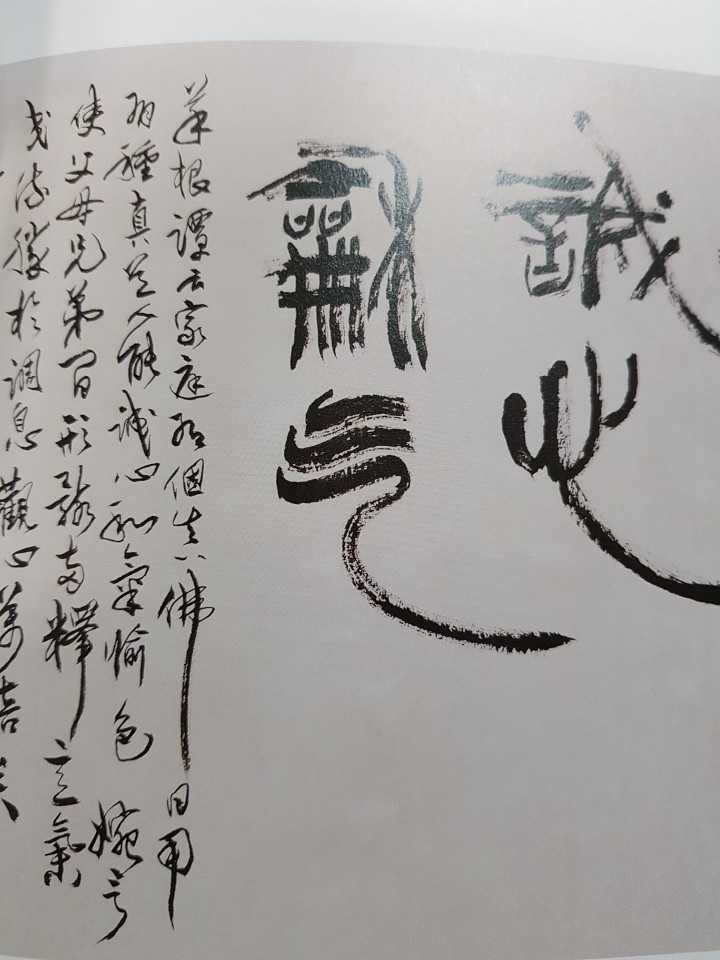 誠心
龢气
菜根譚云家庭有個真佛日用
有種真道人能誠心和氣愉色婉言
使父母兄弟間形骸兩釋意氣
交流勝於調息觀心萬倍矣